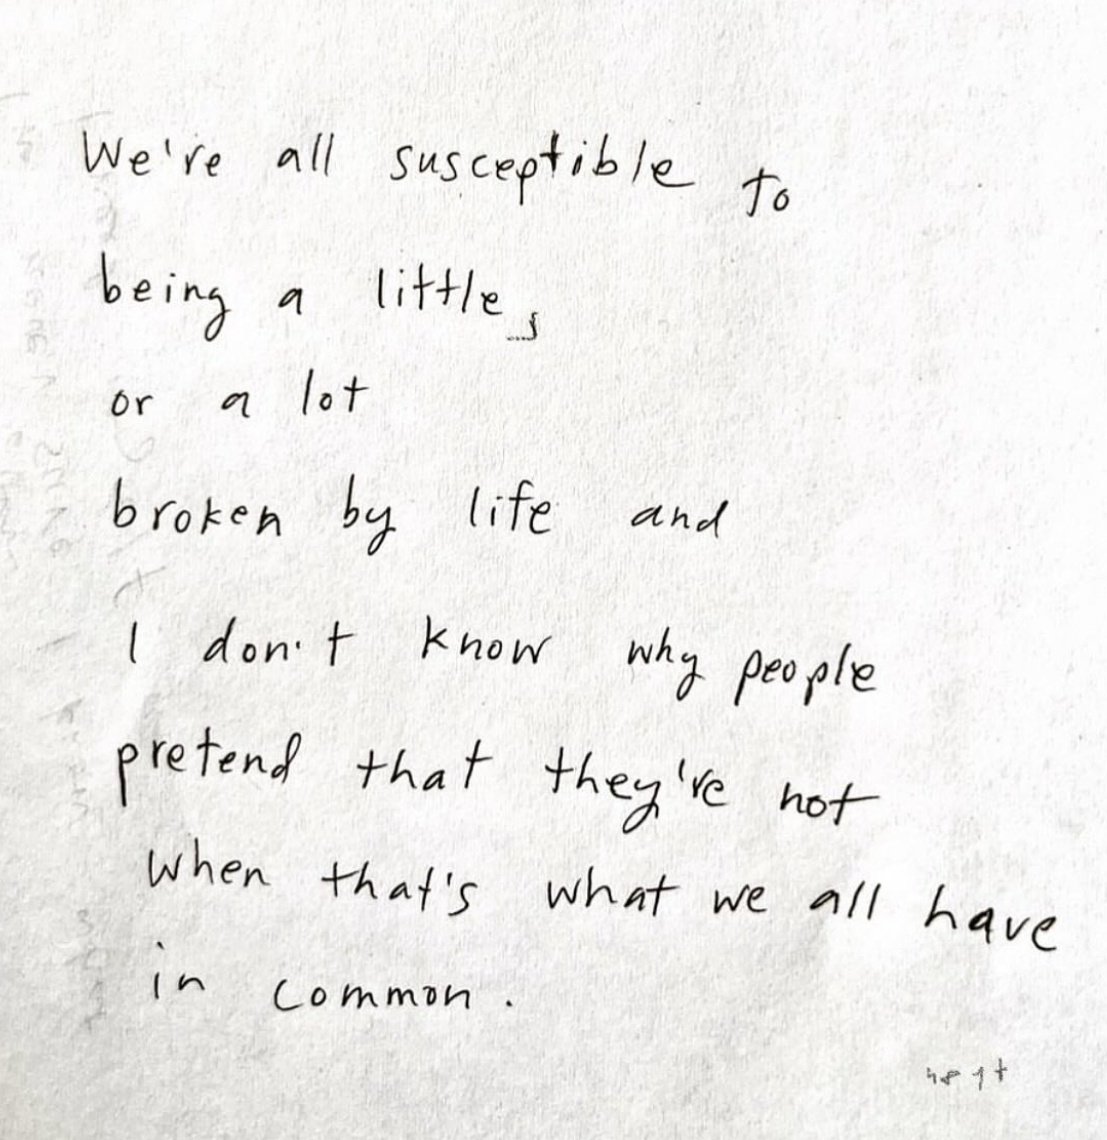 We're all susceptible to
being a little,
or a lot
broken by life and
I don't know why people
pretend that they're not
when that's what we all have
in common.